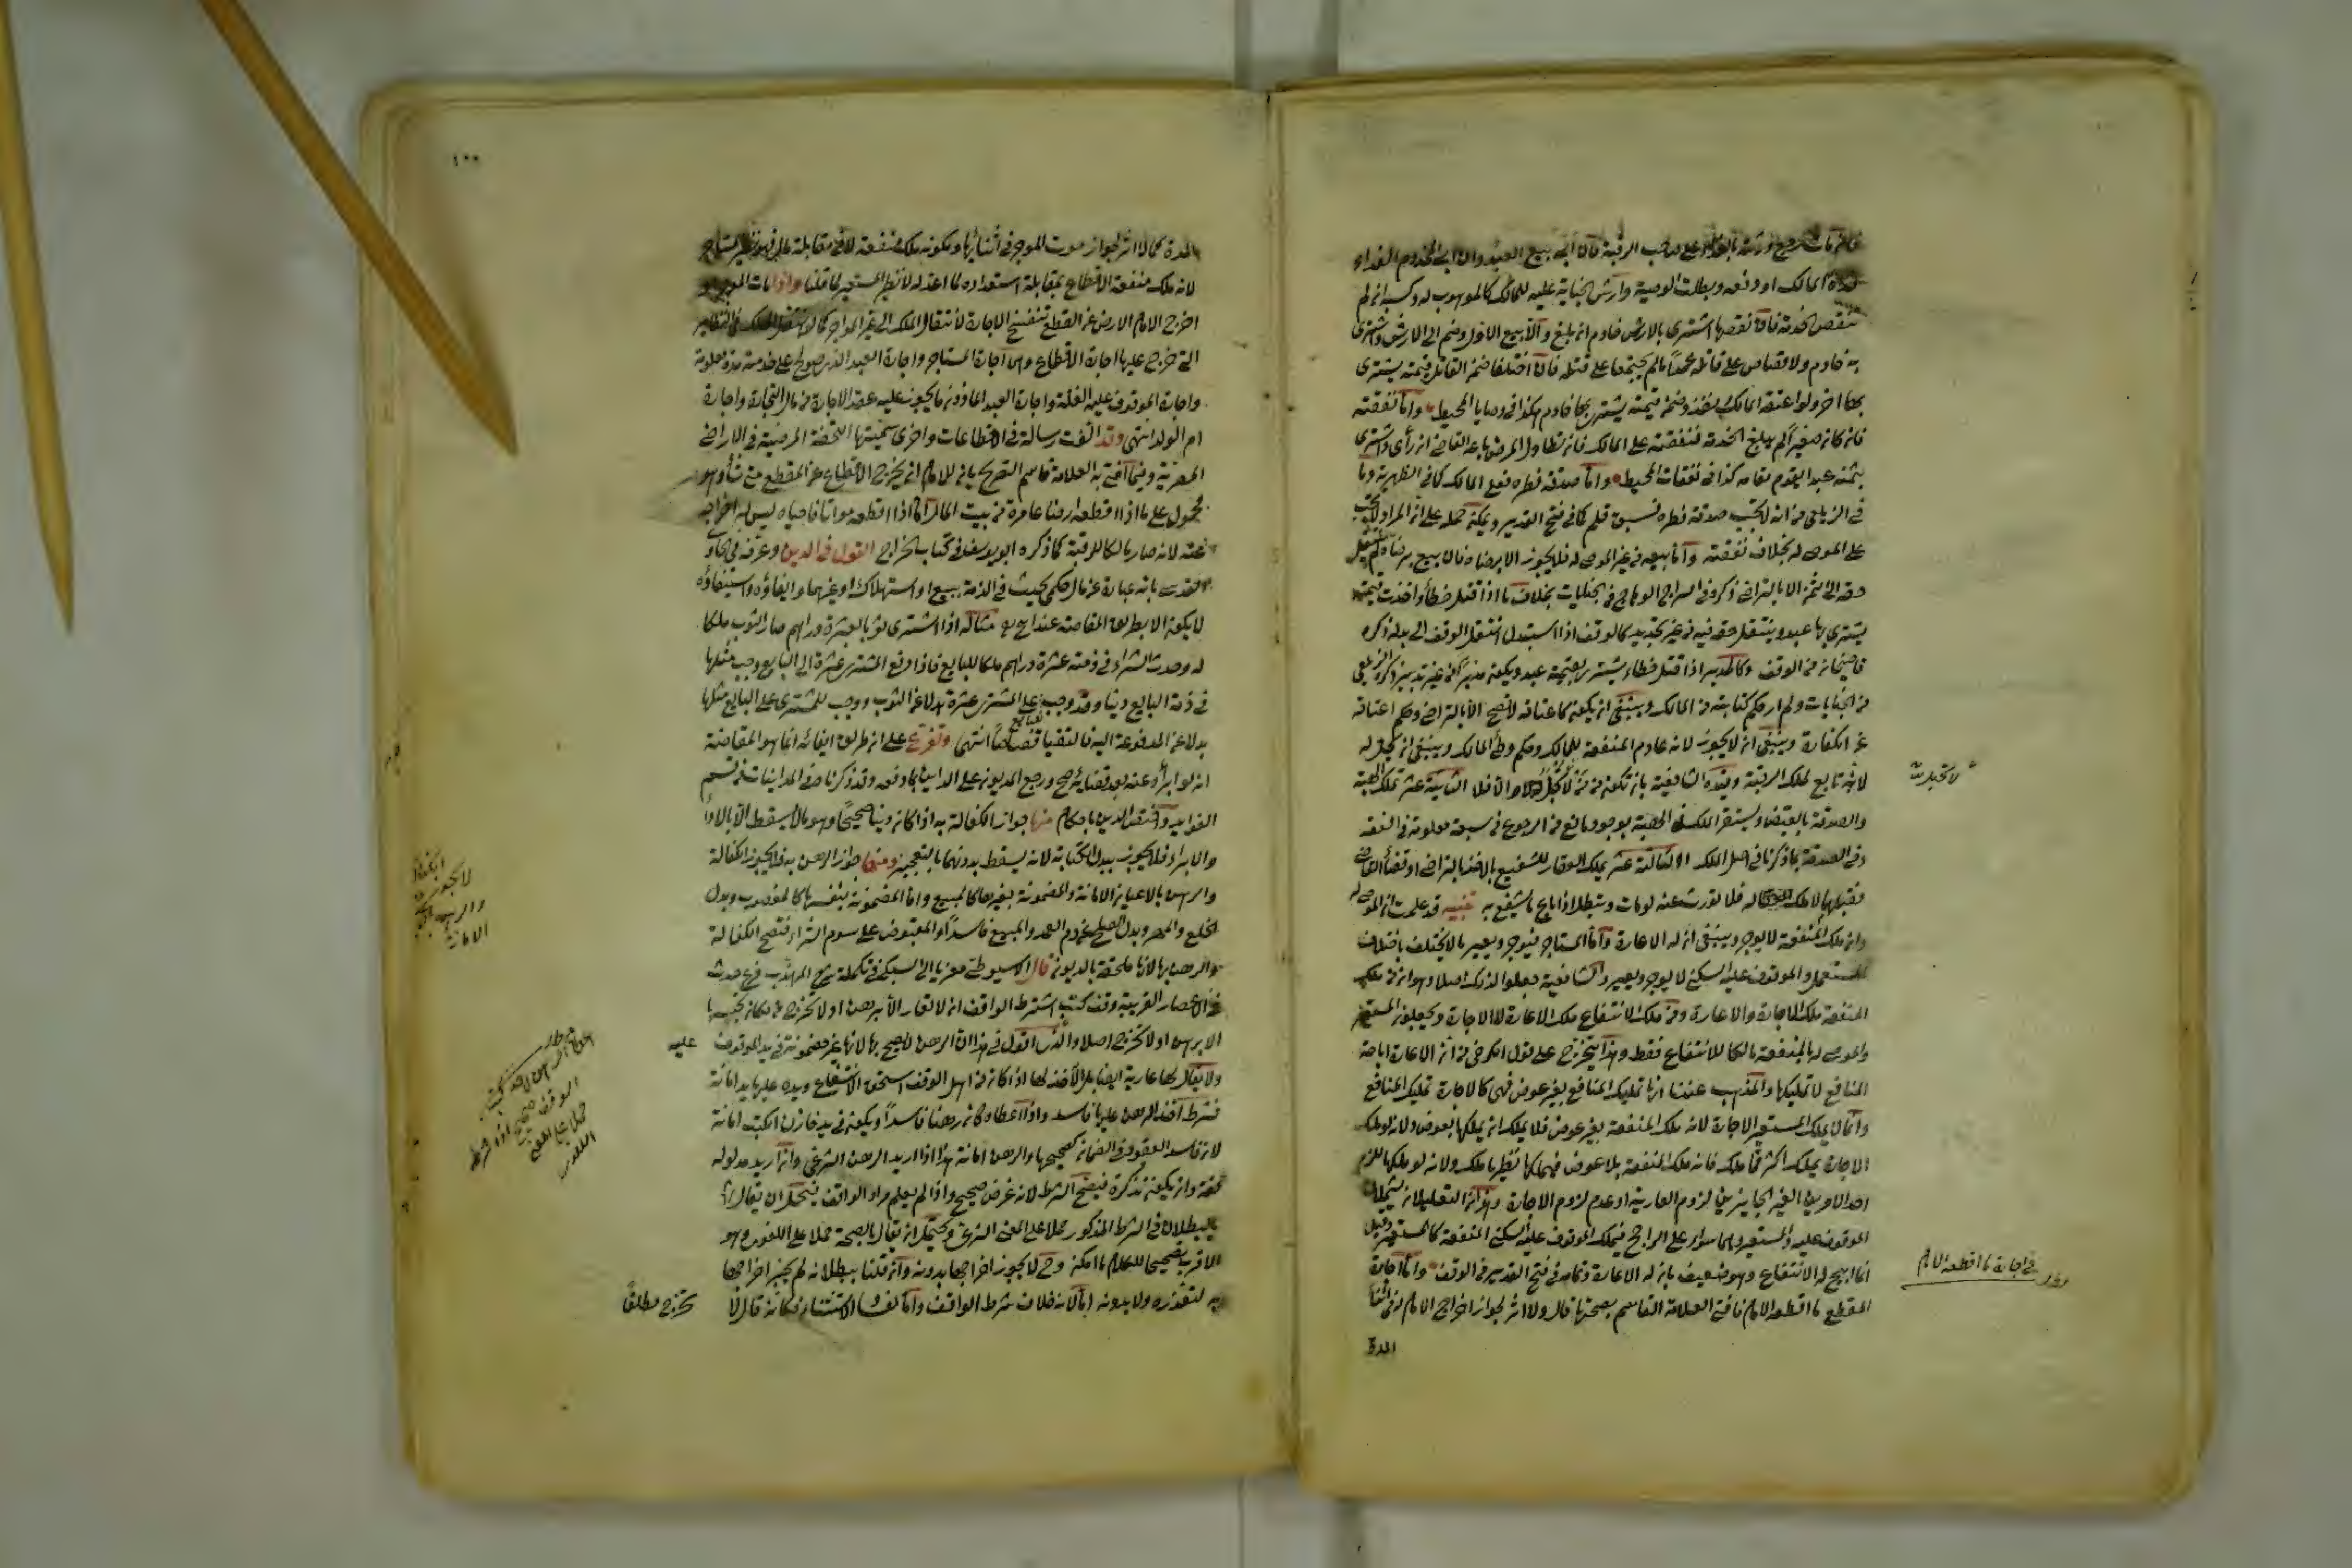 فان مات رجع ورثته بالفداء على صاحب الرقبة فان ابى بيع العبد وان ابى المخدوم الفداء
فداه المالك او دفعه وبطلت الوصية وارش الجناية عليه للمالك كالموهوب له وكسبه ان لم
تنقص الخدمة فان نقصها اشترى بالارش خادم ان بلغ والا بيع الاول وضم الى الارش واشترى
به خادم ولا قصاص على قاتله عمدا ما لم يجتمعا على قتله فان اختلفا ضمن القاتل قيمته يشترى
بها اخر ولو اعتقه المالك نفذ وضمن قيمته يشترى بها خادم هكذا في وصايا المحيط واما نفقته
فان كان صغيرا لم يبلغ الخدمة فنفقته على المالك فان تطاول المرض باعه القاضي ان رأى واشترى
بثمنه عبدا يقوم مقامه كذا في نفقات المحيط واما صدقة فطره فعلى المالك كما في الظهيرية وما
في الزيلعي من انه لا تجب صدقة فطره فسبق قلم كما في فتح القدير ويمكن حمله على ان المراد لا تجب
على الموصى له بخلاف نفقته واما بيعه من غير الموصى له فلا يجوز الا برضاه فان بيع برضاه لم ينتقل
حقه الى الثمن الا بالتراضي ذكره في السراج الوهاج في الجنايات بخلاف ما اذا قتل خطأ واخذت قيمته
يشترى بها عبد وينتقل حقه فيه من غير تجديد كالوقف اذا استبدل انتقل الوقف الى بدله ذكره
قاضيخان في الوقف وكالمدبر اذا قتل خطاء يشترى بقيمته عبد ويكون مدبرا من غير تدبير ذكره الزيلعي
في الجنايات ولم ار حكم كتابته من المالك وينبغي ان يكون كاعتاقه لا تصح الا بالتراضي وحكم اعتاقه
عن الكفارة وينبغي ان لا يجوز لانه عادم المنفعة للمالك وحكم وطئ المالك وينبغي ان يحل له
لانه تابع لملك الرقبة وقيده الشافعية بان تكون ممن لا تحبل والا فلا الثانية عشر تملك الهبة
والصدقة بالقبض ويستقر الملك في الهبة بوجود مانع من الرجوع من سبعة معلومة في الفقه
وفي الصدقة بما ذكرنا في اصل الملك الثالثة عشر يملك العقار للشفيع بالاخذ بالتراضي او قضاء القاضي
فقبلهما لا ملك له فلا تورث عنه لو مات وتبطل اذا باع ما يشفع به تنبيه قد علمت ان الموصى له
وان ملك المنفعة لا يوجر وينبغي ان له الاعارة واما المستاجر فيوجر ويعير ما لا يختلف باختلاف
المستعمل والموقوف عليه السكنى لا يوجر ويعير والشافعية جعلوا لذلك اصلا وهو ان من ملك
المنفعة ملك الاجارة والاعارة ومن ملك الانتفاع ملك الاعارة لا الاجارة ويجعلون المستعير
والموصى له بالمنفعة مالكا للانتفاع فقط وهذا يتخرج على قول الكرخي من ان الاعارة اباحة
المنافع لا تمليكها والمذهب عندنا انها تمليك المنافع بغير عوض فهي كالاجارة تمليك المنافع
وانما لا يملك المستعير الاجارة لانه ملك المنفعة بغير عوض فلا يملك ان يملكها بعوض ولانه لو ملك
الاجارة لملك اكثر مما ملك فانه ملك المنفعة بلا عوض فيملكها نظير ما ملك ولانه لو ملكها للزم
احد الامرين الغير الجايزين لزوم العارية او عدم لزوم الاجارة وهذان التعليلان يشملان
الموقوف عليه والمستعير وهما سواء على الراجح فيملك الموقوف عليه السكنى المنفعة كالمستعير وقيل
انما ابيح له الانتفاع وهو ضعيف بان له الاعارة وتمامه في فتح القدير في الوقف واما اجارة
المقطع ما اقطعه الامام فافتى العلامة القاسم بصحتها قال ولا اثر لجواز اخراج الامام له في اثناء
المدة
لا تحبل
في اجارة ما اقطعه الامام
١٠٠
المدة كما لا اثر لجواز موت الموجر في اثنائها ولكونه ملك منفعة لا في مقابلة مال فهو نظير المستاجر
لانه ملك منفعة الاقطاع بمقابلة استعداده لما اعد له لا نظير المستعير لما قلنا واذا مات الموجر او
اخرج الامام الارض عن المقطع تنفسخ الاجارة لانتقال الملك الى غير الموجر كما لو انتقل الملك في النظاير
التي خرج عليها اجارة الاقطاع وهي اجارة المستاجر واجارة العبد الذي صولح على خدمته مدة معلومة
واجارة الموقوف عليه الغلة واجارة العبد الماذون ما يجوز عليه عقد الاجارة من مال التجارة واجارة
ام الولد انتهى وقد الفت رسالة في الاقطاعات واخرى سميتها التحفة المرضية في الاراضي
المصرية وفيما افتى به العلامة قاسم التصريح بان للامام ان يخرج الاقطاع عن المقطع متى شاء وهو
محمول على ما اذا اقطعه ارضا عامرة من بيت المال اما اذا اقطعه مواتا فاحياه ليس له اخراجه
عنه لانه صار مالكا للرقبة كما ذكره ابو يوسف في كتاب الخراج القول في الدين وعرفه في الحاوي
القدسي بانه عبارة عن مال حكمي يحدث في الذمة ببيع او استهلاك او غيرهما وايفاؤه واستيفاؤه
لا يكون الا بطريق المقاصة عند ابي ح مثاله اذا اشترى ثوبا بعشرة دراهم صار الثوب ملكا
له وحدث الشراء في ذمته عشرة دراهم ملكا للبايع فاذا دفع المشتري عشرة الى البايع وجب مثلها
في ذمة البايع دينا وقد وجب للبايع على المشتري عشرة بدلا عن الثوب ووجب للمشتري على البايع مثلها
بدلا عن المدفوعة اليه فالتقيا قصاصا انتهى وتفرع على ان طريق ايفائه انما هو المقاصة
انه لو ابرأه عنه بعد قضائه صح ورجع المديون على الداين بما دفعه وقد ذكرناه في المداينات من قسم
الفوايد واختص الدين باحكام منها جواز الكفالة به اذا كان دينا صحيحا وهو ما لا يسقط الا بالاداء
والابراء فلا يجوز ببدل الكتابة لانه يسقط بدونهما بالتعجيز ومنها جواز الرهن به فلا يجوز الكفالة
والرهن بالاعيان الامانة والمضمونة بغيرها كالمبيع واما المضمونة بنفسها كالمغصوب وبدل
الخلع والمهر وبدل الصلح عن دم العمد والمبيع فاسدا والمقبوض على سوم الشراء فتصح الكفالة
والرهن بها لانها ملحقة بالديون قال الاسيوطي معزيا الى السبكي في تكملة شرح المهذب فرع حدث
في الاعصار القريبة وقف كتب اشترط الواقف ان لا تعار الا برهن او لا تخرج من مكان تحبيسها
الا برهن او لا تخرج اصلا والذي اقول في هذا ان الرهن لا يصح بها لانها غير مضمونة في يد الموقوف عليه
ولا يقال لها عارية ايضا بل الاخذ لها اذا كان من اهل الوقف استحق الانتفاع ويده عليها يد امانة
فشرط اخذ الرهن عليها فاسد واذا اعطاه كان رهنا فاسدا ويكون في يد خازن الكتب امانة
لان فاسد العقود في الضمان كصحيحها والرهن امانة هذا اذا اريد الرهن الشرعي وان اريد مدلوله
لغة وان يكون تذكرة فيصح الشرط لانه غرض صحيح واذا لم يعلم مراد الواقف فيحتمل ان يقال
بالبطلان في الشرط المذكور حملا على المعنى الشرعي ويحتمل ان يقال بالصحة حملا على اللغوي وهو
الاقرب تصحيحا للكلام ما امكن وح لا يجوز اخراجها بدونه وان قلنا ببطلانه لم يجز اخراجها
به لتعذره ولا بدونه اما لانه خلاف شرط الواقف واما لفساد الاستثناء فكانه قال لا
تخرج مطلقا
الكفالة
لا تجوز
والرهن
الامانة
كتب
الوقف صحيح اذا شرط
حملا على المعنى
اللغوي